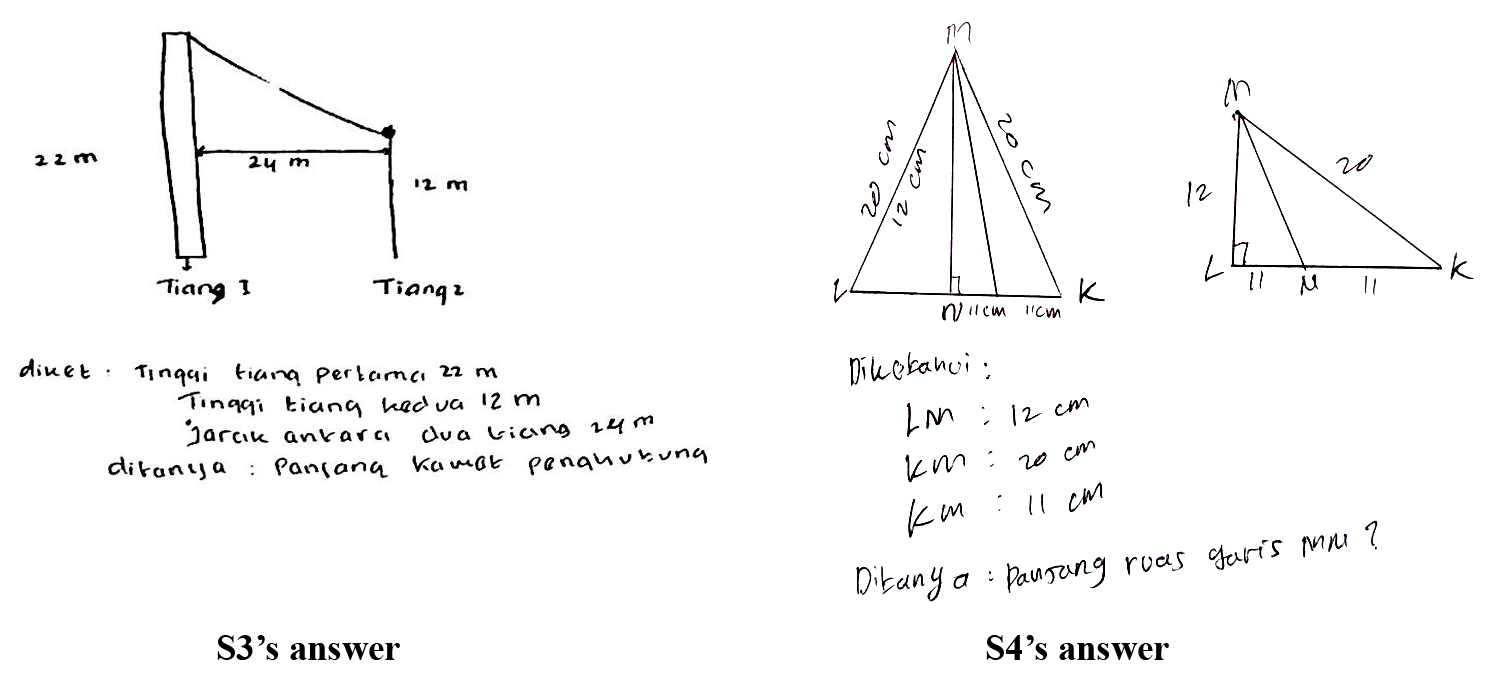 22 m
24 m
12 m
Tiang I
Tiang 2
diket : Tinggi tiang pertama 22 m
Tinggi tiang kedua 12 m
Jarak antara dua tiang 24 m
ditanya : Panjang kawat penghubung
S3's answer
M
20 cm
12 cm
20 cm
L
N
11cm
11cm
K
M
12
20
L
11
M
11
K
Diketahui :
LM : 12 cm
KM : 20 cm
KM : 11 cm
Ditanya : panjang ruas garis MM ?
S4's answer